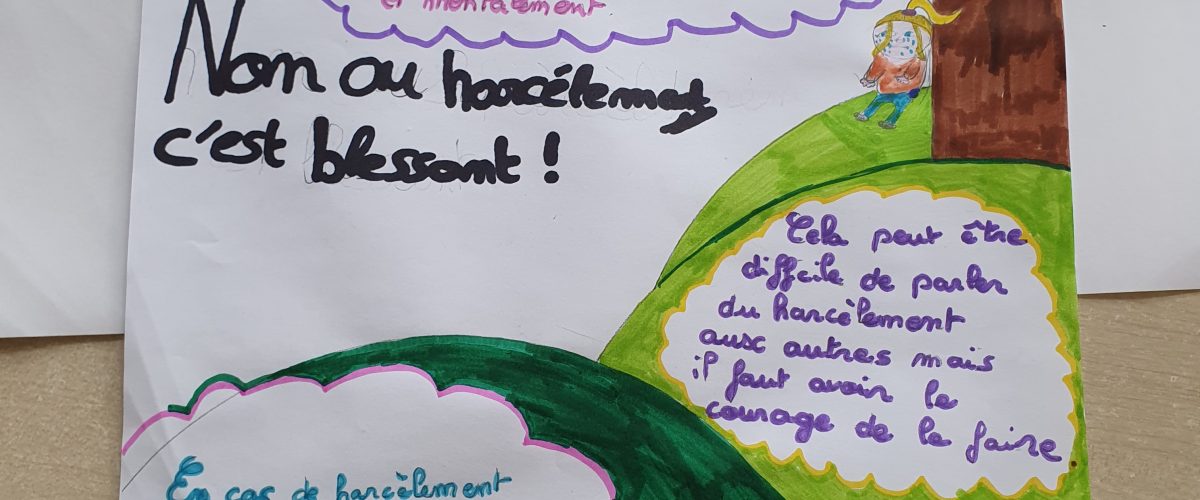 et mentalement
Nom au harcélement
c'est blessant !
Cela peut être
difficile de parler
du harcèlement
aux autres mais
il faut avoir le
courage de le faire
En cas de harcèlement